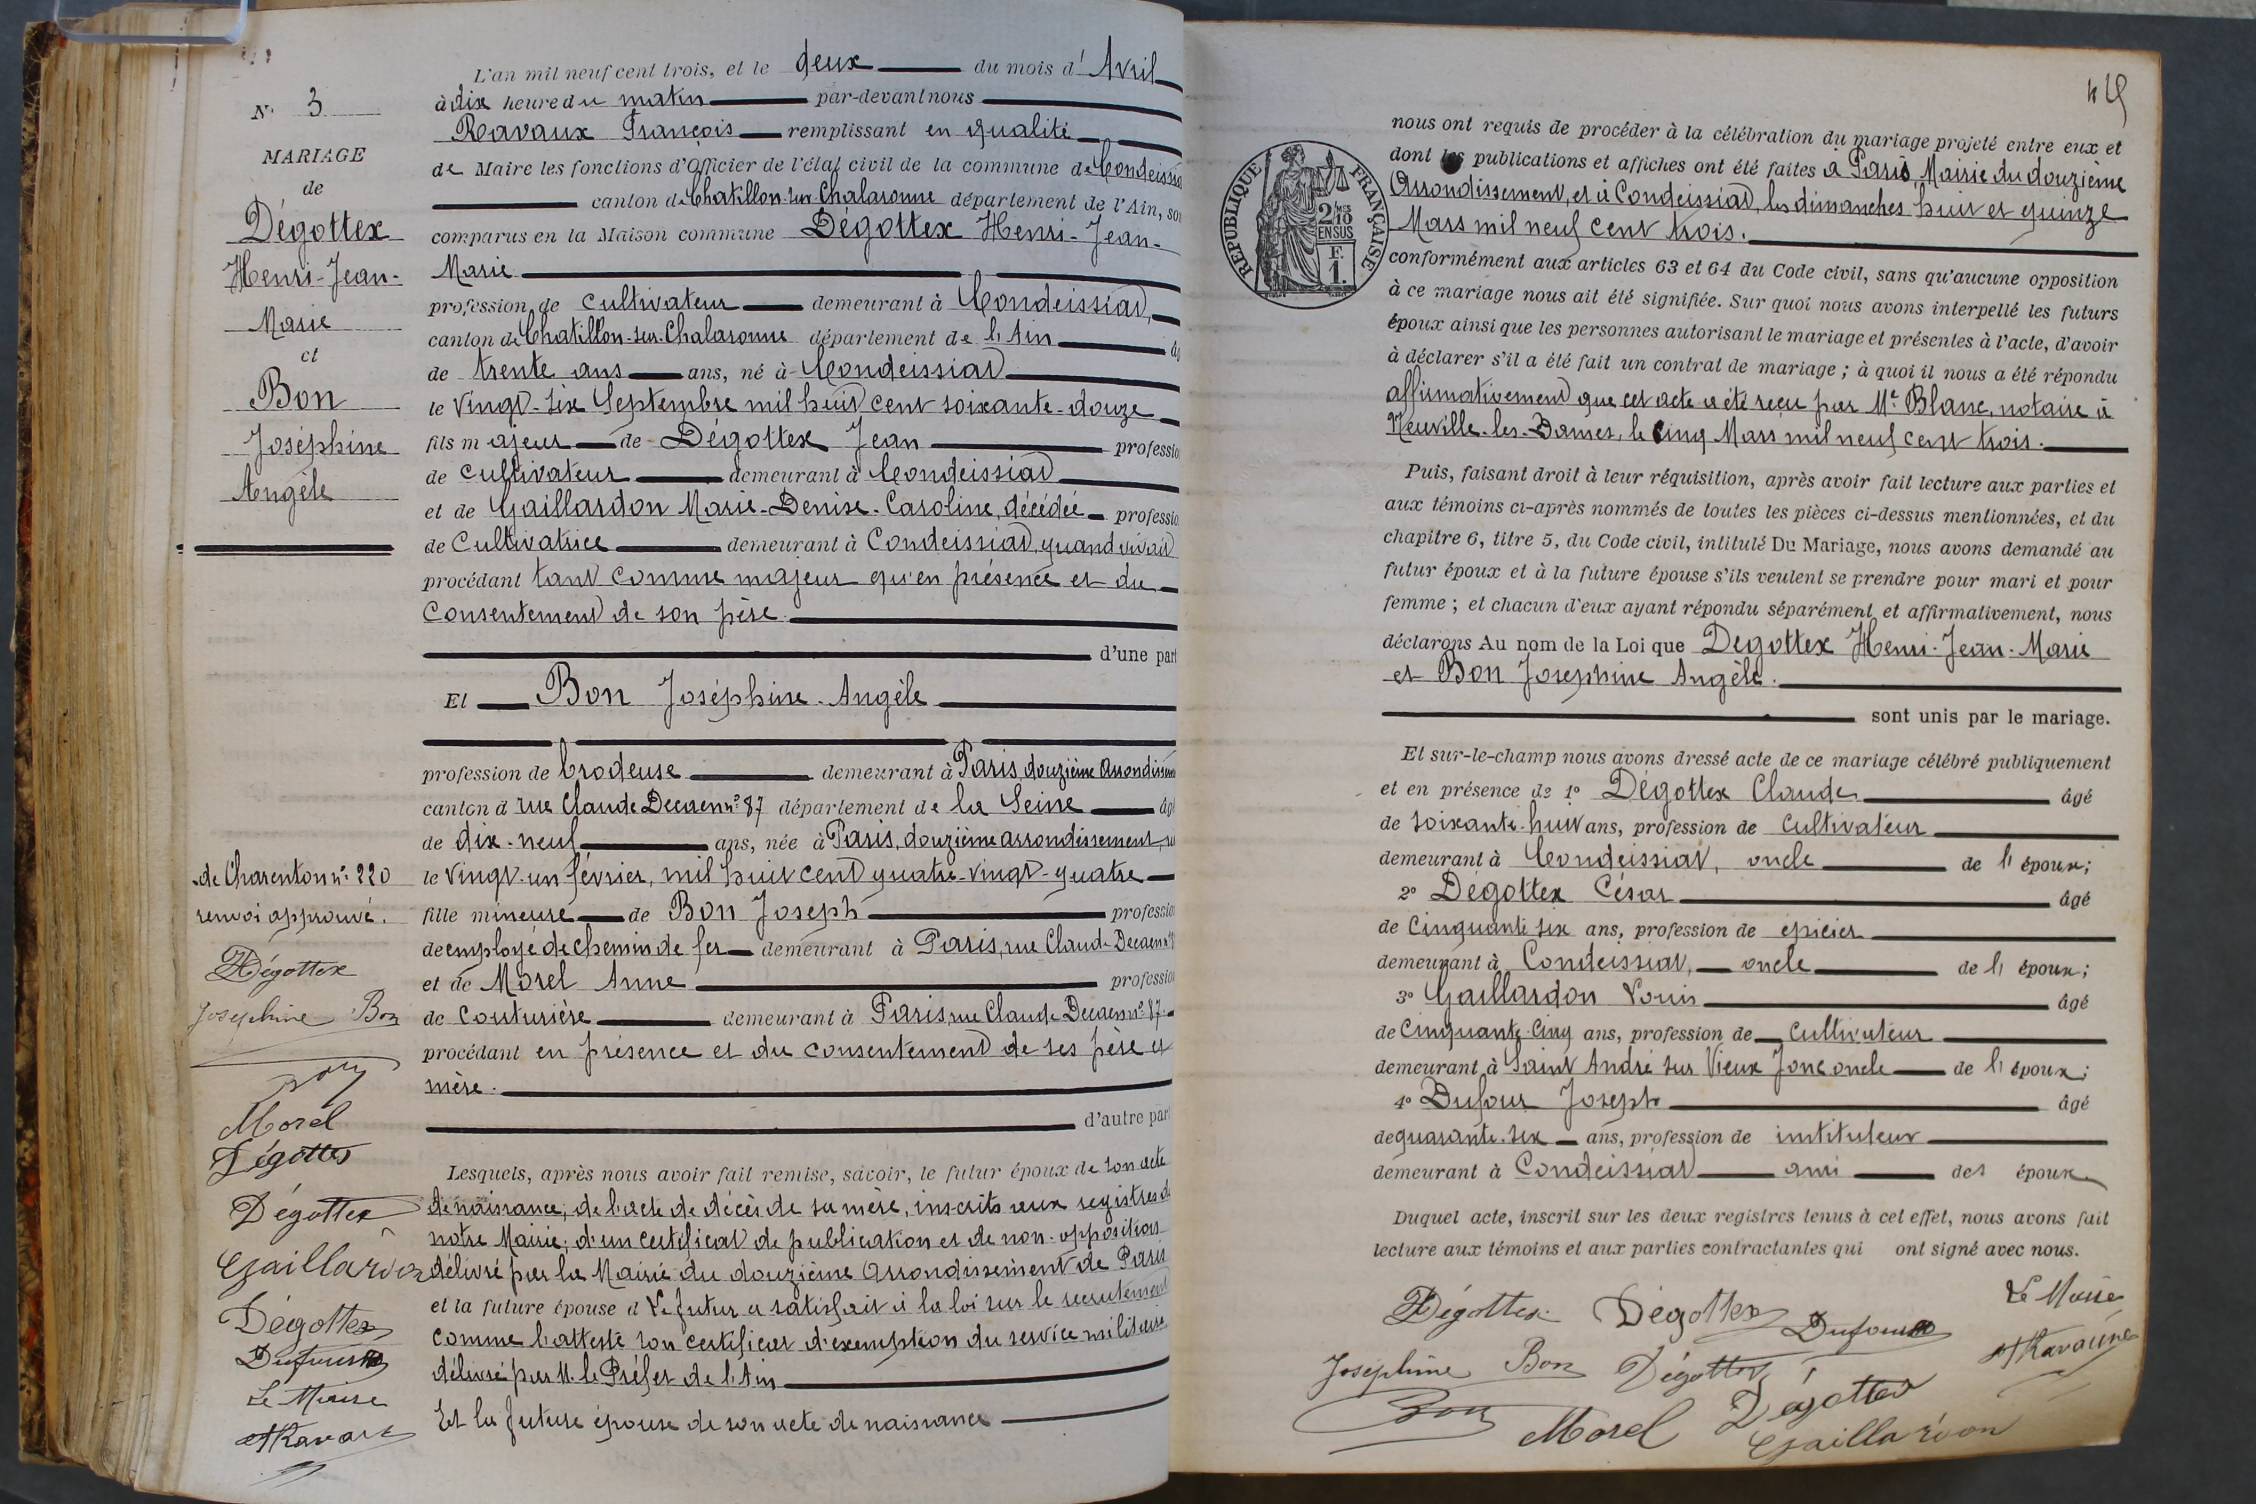 N° 3
MARIAGE
de
Dégottex
Henri-Jean-
Marie
et
Bon
Joséphine
Angèle
de Charenton n° 220
renvoi approuvé.
HDégottex
Joséphine Bon
Bon
Morel
Dégottex
Dégottex
Gaillardon
Dégottex
Dufour
Le Maire
Ravaux
L'an mil neuf cent trois, et le deux du mois d'Avril
à dix heure du matin par-devant nous
Ravaux François remplissant en qualité
de Maire les fonctions d'Officier de l'état civil de la commune de Condeissiat
canton de Chatillon-sur-Chalaronne département de l'Ain, sont
comparus en la Maison commune Dégottex Henri-Jean-
Marie
profession de cultivateur demeurant à Condeissiat,
canton de Chatillon-sur-Chalaronne département de l'Ain âgé
de trente ans ans, né à Condeissiat
le vingt-six Septembre mil huit cent soixante-douze
fils majeur de Dégottex Jean profession
de cultivateur demeurant à Condeissiat
et de Gaillardon Marie-Denise-Caroline, décédée profession
de Cultivatrice demeurant à Condeissiat, quand vivait
procédant tant comme majeur qu'en présence et du
consentement de son père.
d'une part
Et Bon Joséphine-Angèle
profession de brodeuse demeurant à Paris, douzième Arrondissement
canton d rue Claude Decaen n° 87 département de la Seine âgé
de dix-neuf ans, née à Paris, douzième arrondissement, rue
le vingt-un février, mil huit cent quatre-vingt-quatre
fille mineure de Bon Joseph profession
de employé de chemin de fer demeurant à Paris, rue Claude Decaen n° 87
et de Morel Anne profession
de couturière demeurant à Paris, rue Claude Decaen n° 87.
procédant en présence et du consentement de ses père et
mère.
d'autre part
Lesquels, après nous avoir fait remise, savoir, le futur époux de son acte
de naissance; de l'acte de décès de sa mère, inscrits aux registres de
notre Mairie; d'un certificat de publication et de non-opposition
délivré par la Mairie du douzième Arrondissement de Paris
et la future épouse d Le futur a satisfait à la loi sur le recrutement
comme l'atteste son certificat d'exemption du service militaire
délivré par M. le Préfet de l'Ain
Et la future épouse de son acte de naissance
nous ont requis de procéder à la célébration du mariage projeté entre eux et
dont les publications et affiches ont été faites à Paris, Mairie du douzième
Arrondissement, et à Condeissiat, les dimanches huit et quinze
Mars mil neuf cent trois.
RÉPUBLIQUE FRANÇAISE
2/10 MES
EN SUS
F.
1.
conformément aux articles 63 et 64 du Code civil, sans qu'aucune opposition
à ce mariage nous ait été signifiée. Sur quoi nous avons interpellé les futurs
époux ainsi que les personnes autorisant le mariage et présentes à l'acte, d'avoir
à déclarer s'il a été fait un contrat de mariage; à quoi il nous a été répondu
affirmativement que cet acte a été reçu par Me Blanc, notaire à
Neuville-les-Dames, le cinq Mars mil neuf cent trois.
Puis, faisant droit à leur réquisition, après avoir fait lecture aux parties et
aux témoins ci-après nommés de toutes les pièces ci-dessus mentionnées, et du
chapitre 6, titre 5, du Code civil, intitulé Du Mariage, nous avons demandé au
futur époux et à la future épouse s'ils veulent se prendre pour mari et pour
femme; et chacun d'eux ayant répondu séparément et affirmativement, nous
déclarons Au nom de la Loi que Dégottex Henri-Jean-Marie
et Bon Joséphine Angèle.
sont unis par le mariage.
Et sur-le-champ nous avons dressé acte de ce mariage célébré publiquement
et en présence de 1° Dégottex Claude âgé
de soixante-huit ans, profession de cultivateur
demeurant à Condeissiat, oncle de l'époux;
2° Dégottex César âgé
de cinquante six ans, profession de épicier
demeurant à Condeissiat, oncle de l'époux;
3° Gaillardon Louis âgé
de cinquante-cinq ans, profession de cultivateur
demeurant à Saint André sur Vieux Jonc oncle de l'époux;
4° Dufour Joseph âgé
de quarante-six ans, profession de instituteur
demeurant à Condeissiat ami des époux
Duquel acte, inscrit sur les deux registres tenus à cet effet, nous avons fait
lecture aux témoins et aux parties contractantes qui ont signé avec nous.
HDégottex Dégottex Dufour Le Maire
Joséphine Bon Dégottex Ravaux
Bon Morel Dégottex
Gaillardon